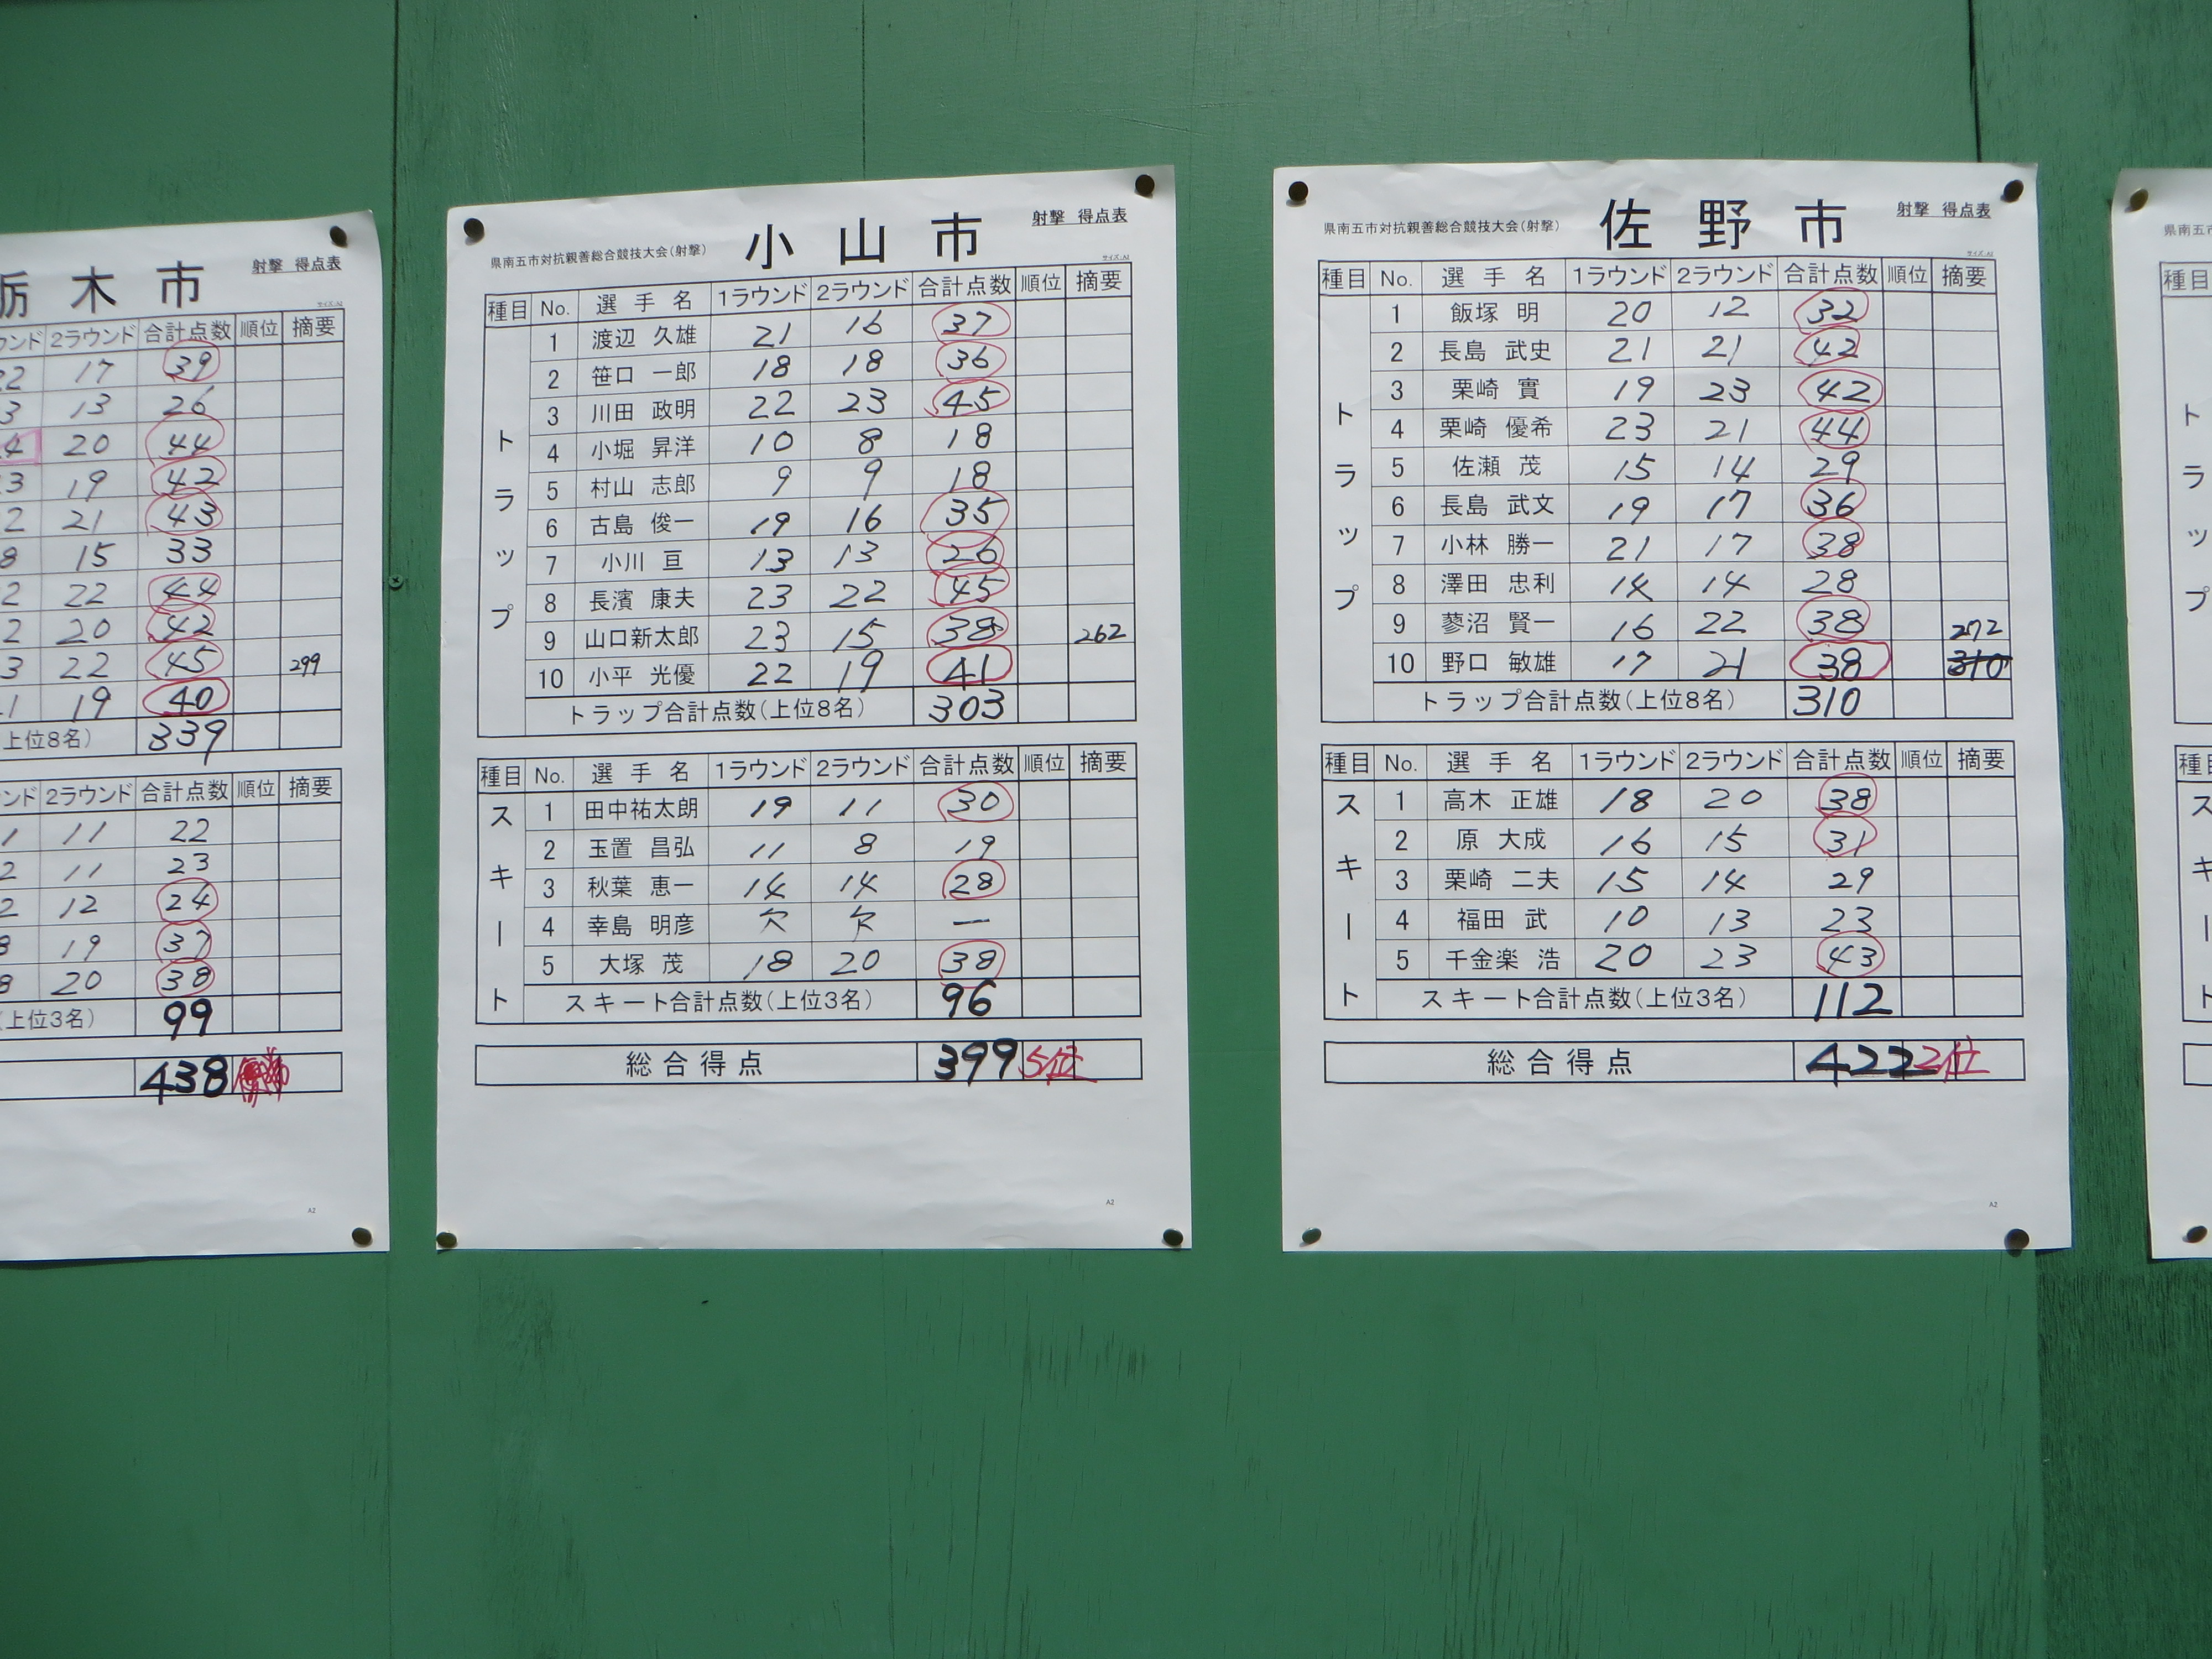 栃木市
射撃 得点表
ンド 2ラウンド 合計点数 順位 摘要
22 17 39
3 13 26
4 20 44
3 19 42
2 21 43
8 15 33
2 22 44
2 20 42
3 22 45 299
1 19 40
上位8名) 339
ンド 2ラウンド 合計点数 順位 摘要
1 11 22
2 11 23
2 12 24
8 19 37
8 20 38
(上位3名) 99
438
A2
県南五市対抗親善総合競技大会(射撃) 小山市 射撃 得点表
サイズ:A2
種目 No. 選手名 1ラウンド 2ラウンド 合計点数 順位 摘要
トラップ
1 渡辺 久雄 21 16 37
2 笹口 一郎 18 18 36
3 川田 政明 22 23 45
4 小堀 昇洋 10 8 18
5 村山 志郎 9 9 18
6 古島 俊一 19 16 35
7 小川 亘 13 13 26
8 長濱 康夫 23 22 45
9 山口新太郎 23 15 38 262
10 小平 光優 22 19 41
トラップ合計点数(上位8名) 303
種目 No. 選手名 1ラウンド 2ラウンド 合計点数 順位 摘要
スキート
1 田中祐太朗 19 11 30
2 玉置 昌弘 11 8 19
3 秋葉 恵一 14 14 28
4 幸島 明彦 欠 欠 ―
5 大塚 茂 18 20 38
スキート合計点数(上位3名) 96
総合得点 399 5位
A2
県南五市対抗親善総合競技大会(射撃) 佐野市 射撃 得点表
サイズ:A2
種目 No. 選手名 1ラウンド 2ラウンド 合計点数 順位 摘要
トラップ
1 飯塚 明 20 12 32
2 長島 武史 21 21 42
3 栗崎 實 19 23 42
4 栗崎 優希 23 21 44
5 佐瀬 茂 15 14 29
6 長島 武文 19 17 36
7 小林 勝一 21 17 38
8 澤田 忠利 14 14 28
9 蓼沼 賢一 16 22 38 272
10 野口 敏雄 17 21 38 310
トラップ合計点数(上位8名) 310
種目 No. 選手名 1ラウンド 2ラウンド 合計点数 順位 摘要
スキート
1 高木 正雄 18 20 38
2 原 大成 16 15 31
3 栗崎 二夫 15 14 29
4 福田 武 10 13 23
5 千金楽 浩 20 23 43
スキート合計点数(上位3名) 112
総合得点 422 2位
A2
県南五
種目
トラップ
種目
スキート